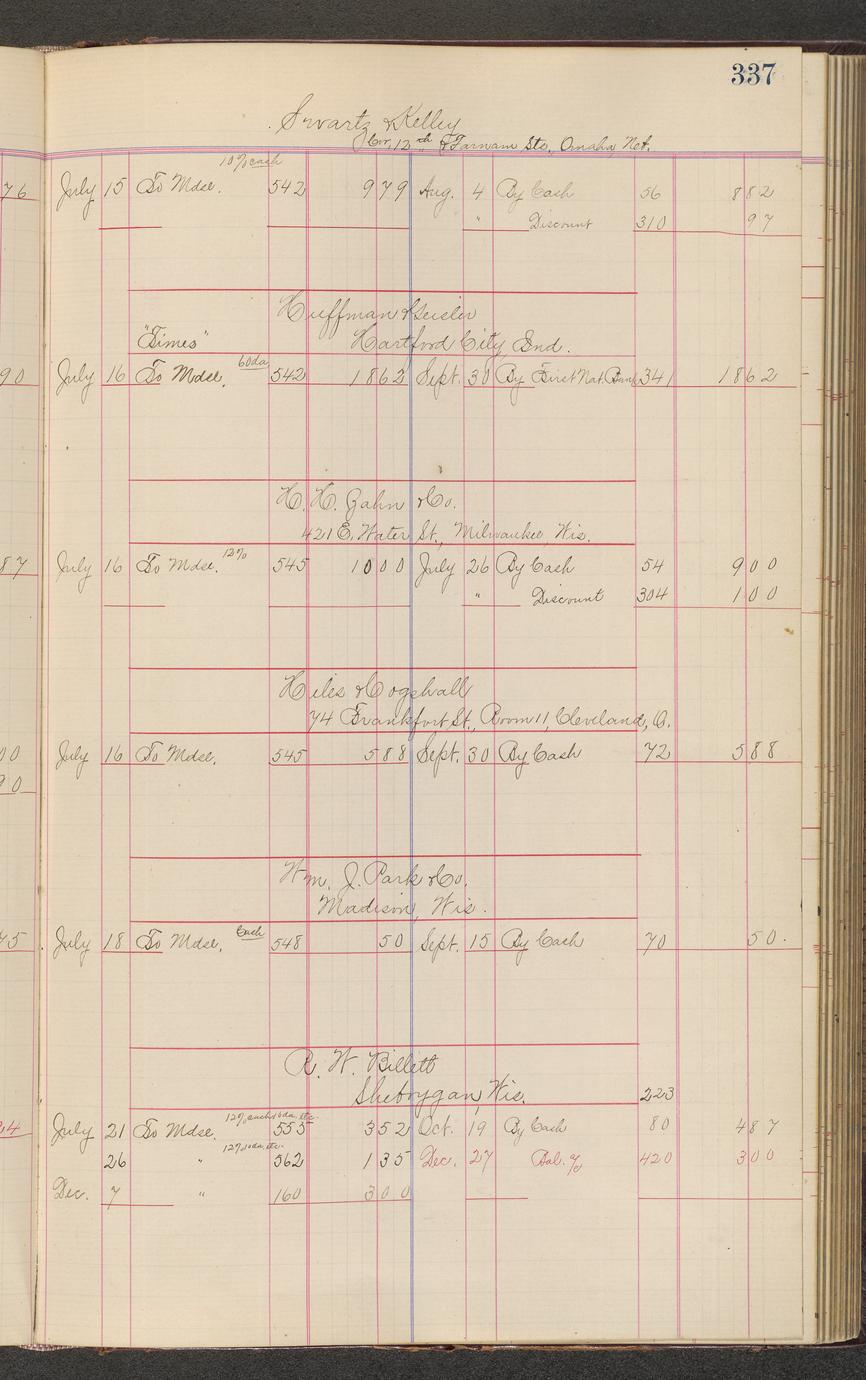 337
Swartz & Kelley
Cor. 12th & Farnam Sts., Omaha Neb.
10% cash
76 July 15 To Mdse. 542 979 Aug. 4 By Cash 56 882
" Discount 310 97
Huffman & Geisler
"Times" Hartford City Ind.
90 July 16 To Mdse. 60 da 542 1862 Sept. 30 By First Nat. Bank 341 1862
H. H. Zahn & Co.
421 E. Water St., Milwaukee, Wis.
87 July 16 To Mdse. 12% 545 1000 July 26 By Cash 54 900
" Discount 304 100
Hiles & Cogshall
74 Frankfort St., Room 11, Cleveland, O.
00 July 16 To Mdse. 545 588 Sept. 30 By Cash 72 588
90
Wm. J. Park & Co.
Madison, Wis.
45 July 18 To Mdse. Cash 548 50 Sept. 15 By Cash 70 50.
R. W. Billett
Sheboygan, Wis. 223
12% cash 10 da. etc.
24 July 21 To Mdse. 555 352 Oct. 19 By Cash 80 487
12% 10 da. etc.
26 " 562 135 Dec. 27 Bal. % 420 300
Dec. 7 " 160 300